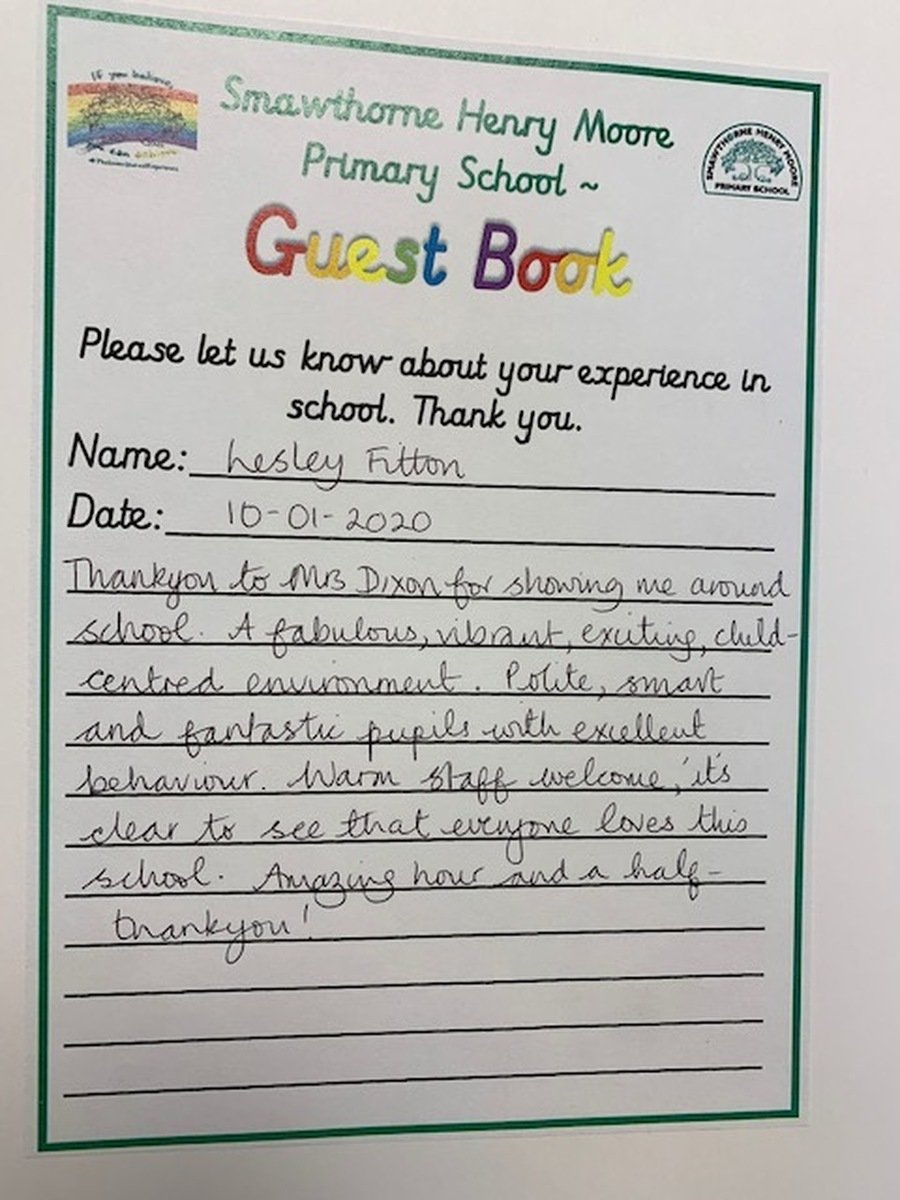 If you believe,
you can achieve
Smawthorne Henry Moore
Primary School ~
SMAWTHORNE HENRY MOORE
PRIMARY SCHOOL
Guest Book
Please let us know about your experience in
school. Thank you.
Name: Lesley Fitton
Date: 10-01-2020
Thankyou to Mrs Dixon for showing me around
school. A fabulous, vibrant, exciting, child-
centred environment. Polite, smart
and fantastic pupils with excellent
behaviour. Warm staff welcome, 'it's
clear to see that everyone loves this
school. Amazing hour and a half-
thankyou!